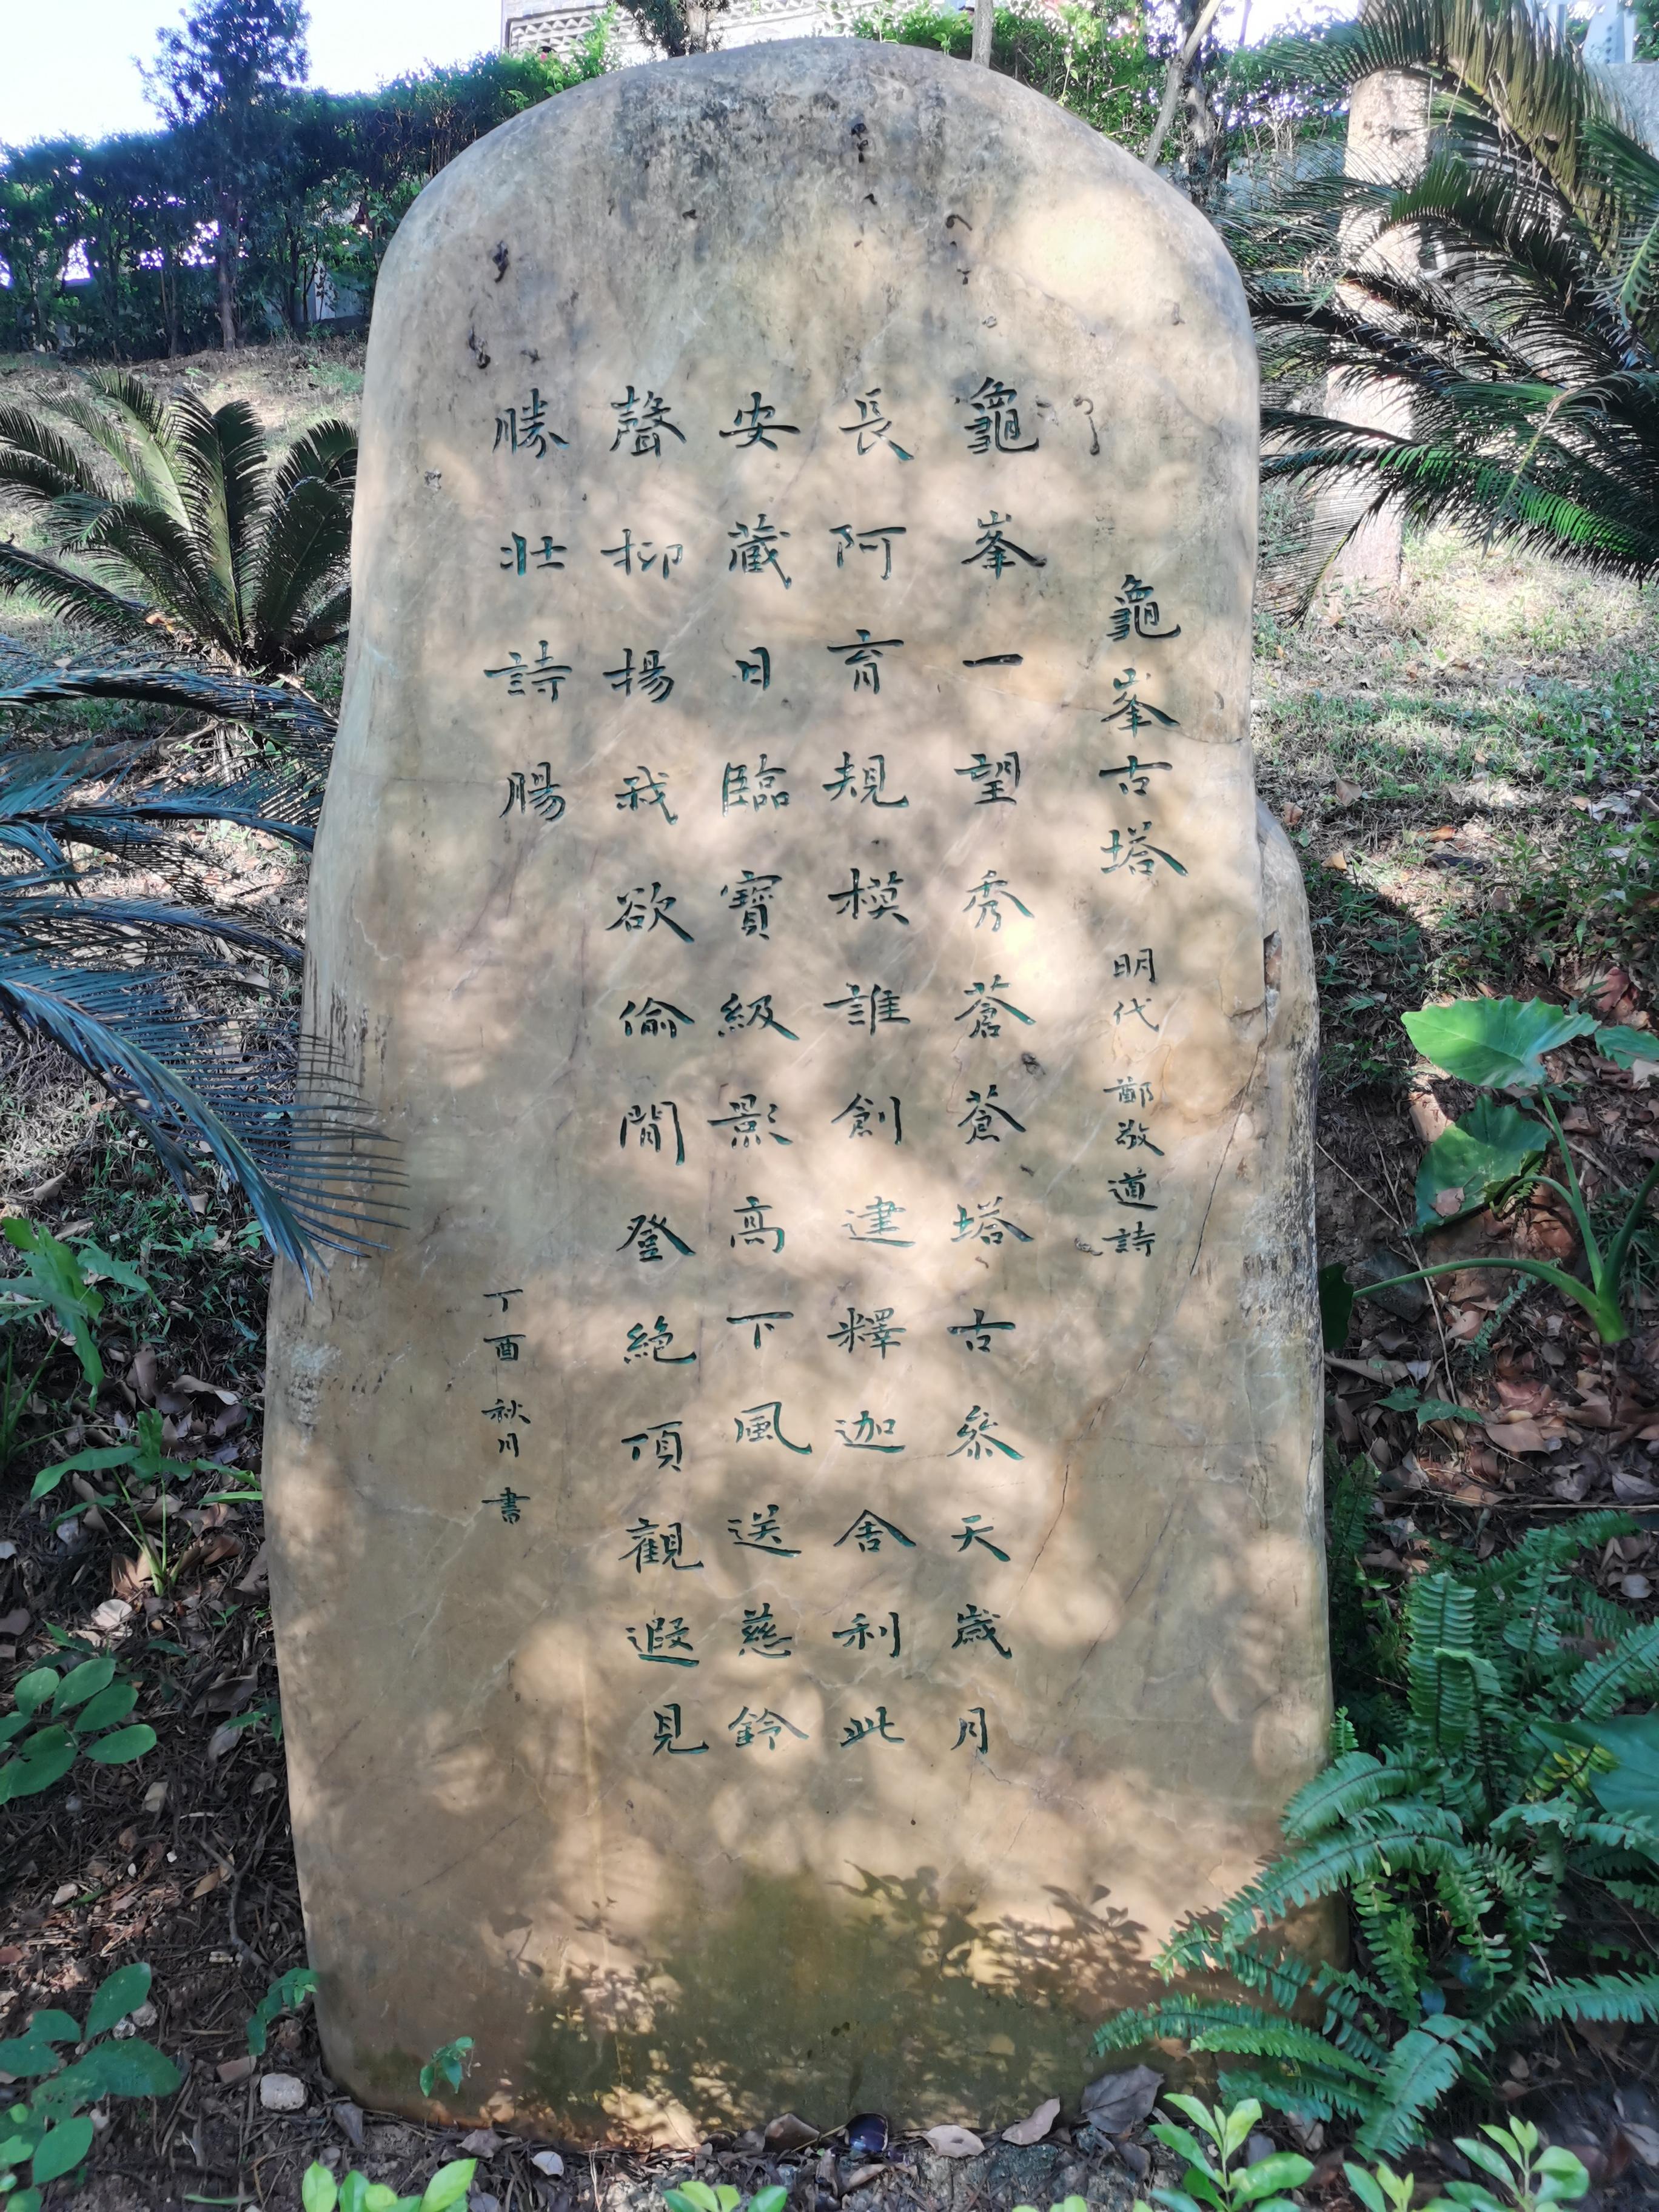 龜峯古塔 明代 鄺敬道詩
龜峯一望秀蒼蒼塔古參天歲月
長阿育規模誰創建釋迦舍利此
安藏日臨寶級影高下風送慈鈴
聲抑揚我欲偷閒登絕頂觀遐見
勝壯詩腸
丁酉 秋月 書